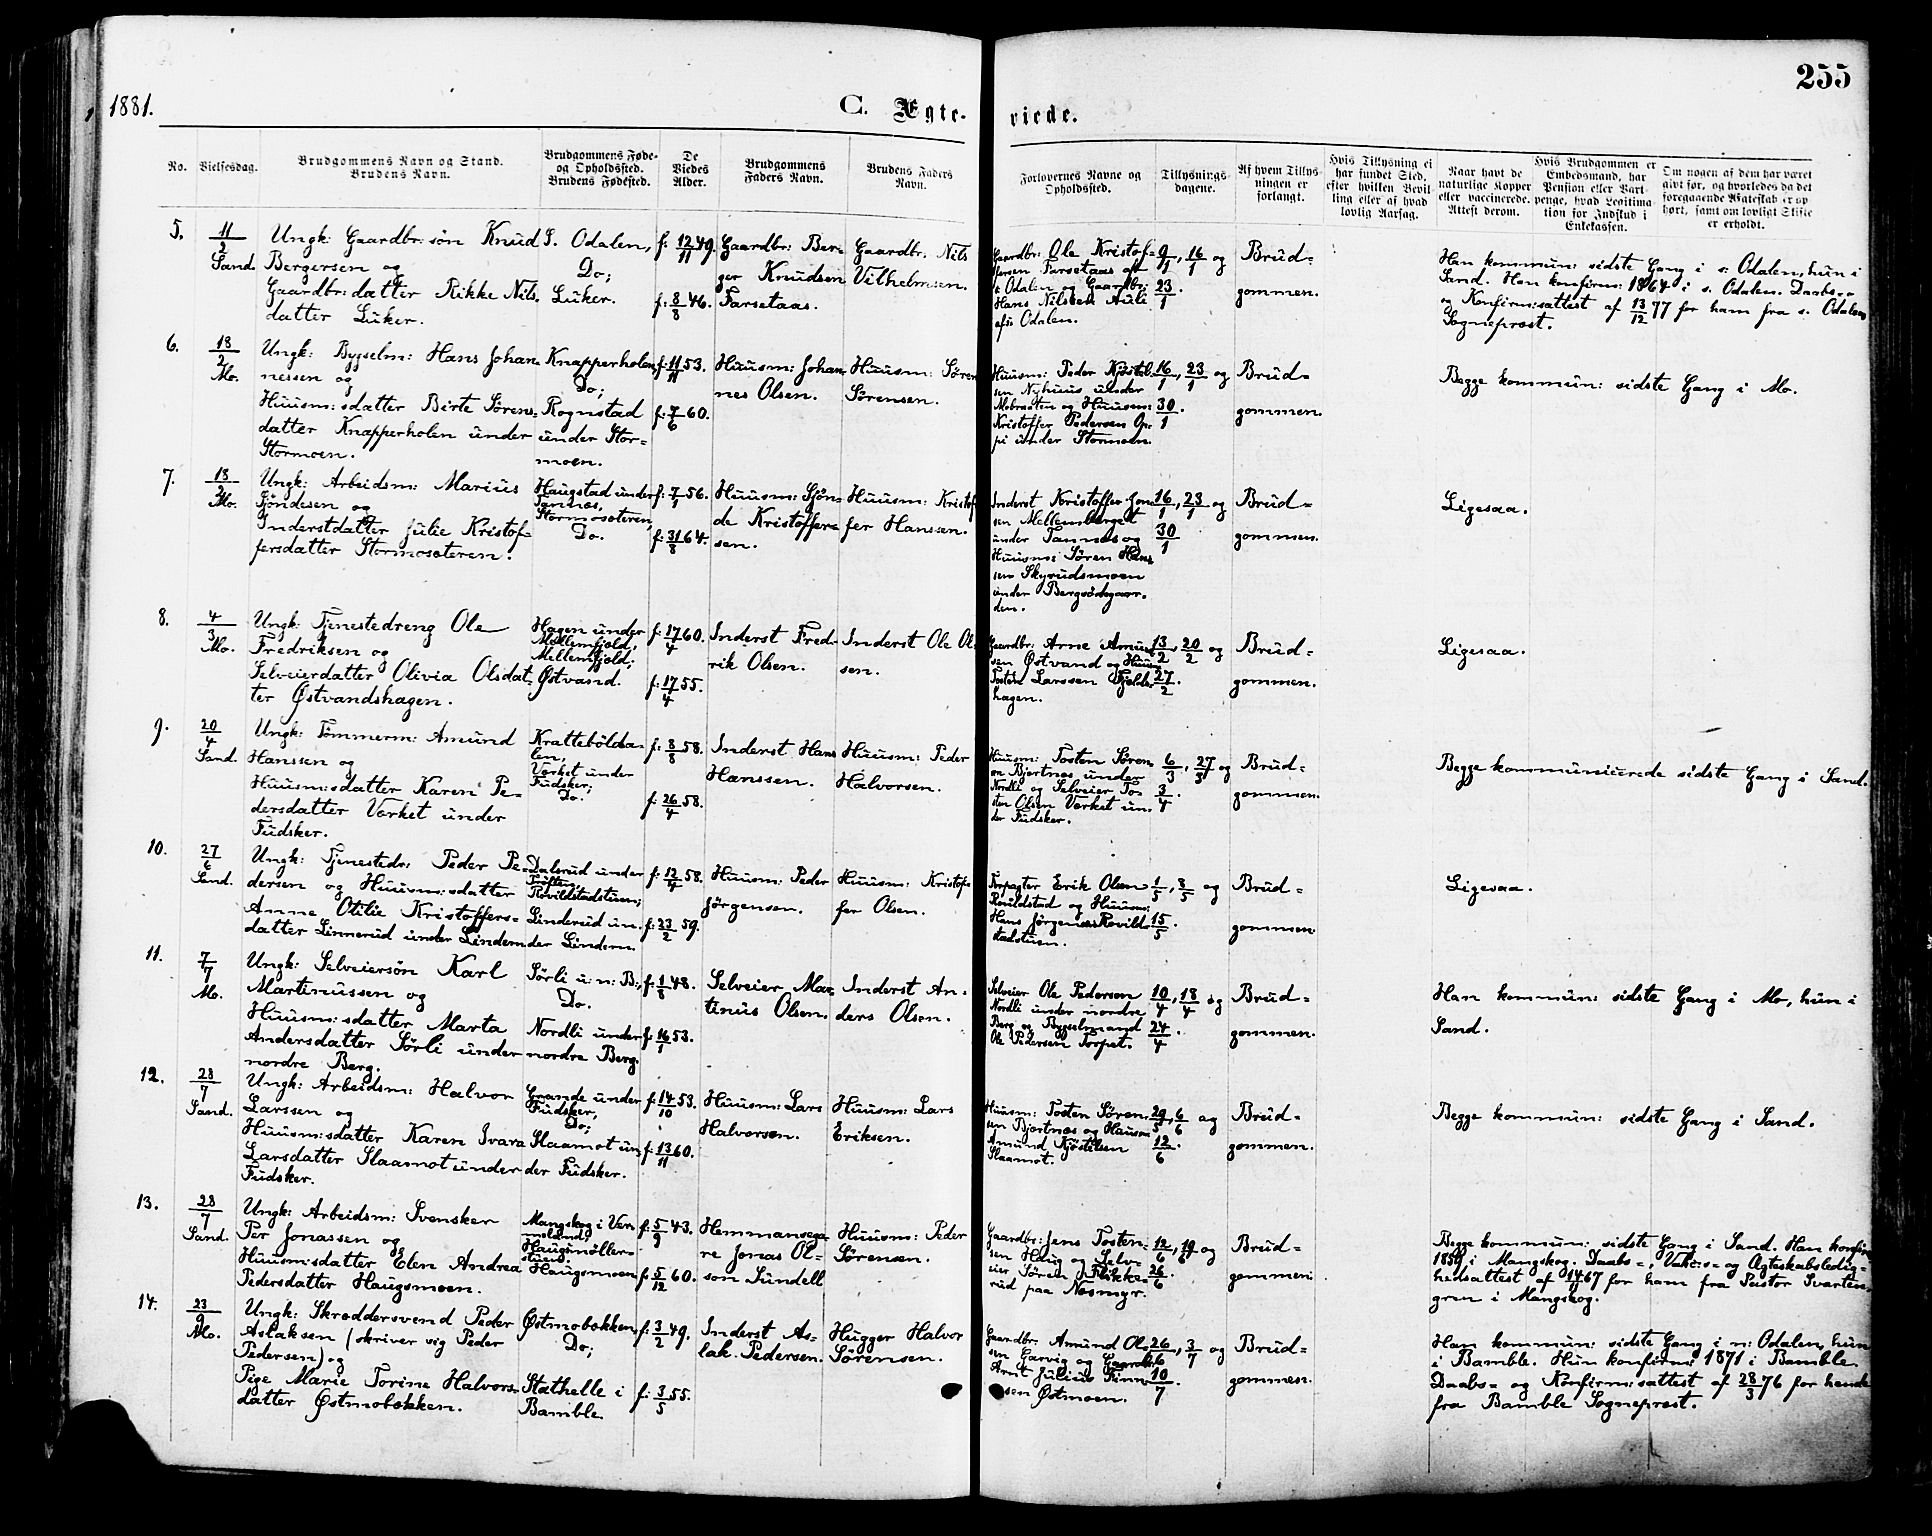 1881.
C. Ægte-
viede.
255
No.
Vielsesdag.
Brudgommens Navn og Stand.
Brudens Navn.
Brudgommens Føde-
og Opholdssted.
Brudens Fødested.
De
Viedes
Alder.
Brudgommens
Faders Navn.
Brudens Faders
Navn.
Forlovernes Navne og
Opholdssted.
Tillysnings-
dagene.
Af hvem Tillys-
ningen er
forlangt.
Hvis Tillysning ei
har fundet Sted,
efter hvilken Bevil-
ling eller af hvad
lovlig Aarsag.
Naar havt de
naturlige Kopper
eller vaccinerede.
Attest derom.
Hvis Brudgommen er
Embedsmand, har
Pension eller Vart-
penge, hvad Legitima-
tion for Indskud i
Enkekassen.
Om nogen af dem har været
givt før, og hvorledes da det
foregaaende Ægteskab er op-
hørt, samt om lovligt Skifte
er erholdt.
5.
11/2
Sand.
Ungk: Gaardbr: søn Knud
Bergersen og
Gaardbr: datter Rikke Nils-
datter Luker.
S. Odalen,
Do;
Luker.
f: 12/11 49.
f: 8/8 46.
Gaardbr: Ber-
ger Knudsen
Farsetaas.
Gaardbr. Nils
Vilhelmsen.
Gaardbr: Ole Kristof-
fersen Farsetaas af
s. Odalen og Gaardbr:
Hans Nilssen Auli
af s. Odalen.
9/1, 16/1 og
23/1.
Brud=
gommen.
Han kommun: sidste Gang i s: Odalen, hun i
Sand. Han konfirm: 1864 i s. Odalen. Daabs-
og Konfirm:sattest af 13/12 77 for ham fra s. Odalens
Sogneprest.
6.
18/2
Mo.
Ungk: Bygselm: Hans Johan-
nessen og
Huusm:sdatter Birte Sørens-
datter Knapperholen under
Stormoen.
Knapperholen,
Do;
Rognstad
under Stor=
moen.
f: 11/11 53.
f: 7/6 60.
Huusm: Johan-
nes Olsen.
Huusm: Søren
Sørensen.
Huusm: Peder Kjøstel-
sen Nyhuus under
Mobraaten og Huusm:
Kristoffer Pedersen Op-
pi under Stormoen.
16/1, 23/1 og
30/1.
Brud=
gommen.
Begge kommun: sidste Gang i Mo.
7.
18/2
Mo.
Ungk: Arbeidsm: Marius
Sjøndesen og
Inderstdatter Julie Kristof-
fersdatter Stormosæteren.
Haugstad under
Tannæs,
Stormosæteren,
Do.
f: 7/1 56.
f: 31/8 64.
Huusm: Sjøn-
de Kristoffer-
sen.
Huusm: Kristof-
fer Hanssen.
Inderst Kristoffer Jon-
sen Mellemberget
under Tannæs og
Huusm: Søren Han-
sen Skyrudsmoen
under Bergsødegaar-
den.
16/1, 23/1 og
30/1
Brud=
gommen.
Ligesaa.
8.
4/3
Mo.
Ungk: Tjenestedreng Ole
Fredriksen og
Selveierdatter Olivia Olsdat-
ter Østvandshagen.
Hagen under
Mellemfjold,
Mellemfjold;
Østvand.
f: 17/4 60.
f: 17/4 55.
Inderst Fred-
rik Olsen.
Inderst Ole Ol-
sen.
Gaardbr: Arne Arnes-
sen Østvand og Huusm:
Tosten Larssen Fjelds-
hagen.
13/2, 20/2 og
27/2.
Brud=
gommen.
Ligesaa.
9.
20/4
Sand.
Ungk: Tømmerm: Amund
Hanssen og
Huusm:sdatter Karen Pe-
dersdatter Værket under
Fudsker.
Kratteböldda-
len;
Værket under
Fudsker;
Do.
f: 8/8 58.
f: 26/4 58.
Inderst Hans
Hanssen.
Huusm: Peder
Halvorsen.
Huusm: Tosten Søren-
sen Bjertnæs under
Nordli og Selveier To-
sten Olsen Værket un-
der Fudsker.
6/3, 27/3 og
3/4.
Brud=
gommen.
Begge kommunicerede sidste Gang i Sand.
10.
27/6
Sand.
Ungk: Tjenestedr: Peder Pe-
dersen og Huusm:sdatter
Anne Otilie Kristoffers-
datter Linnerud under Lindem.
Dalerud under
Tøften,
Rovildstadstuen;
Linderud un-
der Lindem.
f: 12/4 58.
f: 23/2 59.
Huusm: Peder
Jørgensen.
Huusm: Kristof-
fer Olsen.
Forpagter Erik Olsen
Rovildstad og Huusm:
Hans Jørgensen Rovild-
stadstuen.
1/5, 8/5 og
15/5.
Brud=
gommen
Ligesaa.
11.
7/7
Mo.
Ungk: Selveiersøn Karl
Martinussen og
Huusm:sdatter Marta
Andersdatter Sørli under
nordre Berg.
Sørli u: n: B:,
Do.
Nordli under
nordre Berg.
f: 1/8 48.
f: 16/1 53.
Selveier Mar-
tinus Olsen.
Inderst An-
ders Olsen.
Selveier Ole Pedersen
Nordli under nordre
Berg og Bygselmand
Ole Pedersen Torpet.
10/4, 18/4 og
24/4.
Brud=
gommen.
Han kommun: sidste Gang i Mo, hun i
Sand.
12.
28/7
Sand.
Ungk: Arbeidsm: Halvor
Larssen og
Huusm:sdatter Karen Ivara
Larsdatter Slaamot under
Fudsker.
Grande under
Fudsker,
Do;
Slaamot un-
der Fudsker.
f: 14/10 53.
f: 13/11 60.
Huusm: Lars
Halvorsen.
Huusm: Lars
Eriksen.
Huusm: Tosten Søren-
sen Bjertnæs og Huusm:
Amund Kjøstelsen
Slaamot.
29/5, 6/6 og
12/6.
Brud=
gommen.
Begge kommun: sidste Gang i Sand.
13.
28/7
Sand.
Ungk: Arbeidsm: Svensker
Per Jonassen og
Huusm:sdatter Elen Andrea
Pedersdatter Haugsmoen.
Mangskog i Ver-
mland,
Haugsmøller-
stuen.
Haugsmoen
f: 5/9 43.
f: 5/12 60.
Hemmansega-
re Jonas Ol-
son Sundell
Huusm: Peder
Sørensen.
Gaardbr: Jens Tosten-
sen Haug og Selv-
eier Søren Flikke-
rud paa Næsmyr.
12/6, 19/6 og
26/6.
Brud=
gommen.
Begge kommun: sidste Gang i Sand. Han konfirm:
1859 i Mangskog. Daabs-, Vakc:s- og Ægteskabsledig-
hedsattest af 14/11 67 for ham fra Pastor Svarten-
gren i Mangskog.
14.
23/9
Mo.
Ungk: Skræddersvend Peder
Aslaksen (skriver sig Peder
Pedersen) og
Pige Marie Torine Halvors-
datter Østmobækken.
Østmobækken,
Do;
Stathelle i
Bamble.
f: 3/2 49.
f: 3/5 55.
Inderst As-
lak Pedersen.
Hugger Halvor
Sørensen.
Gaardbr: Amund Ol-
sen Garvig og Gaardbr:
Arnt Julius Finn-
sen Østmoen.
26/6, 3/7 og
10/7
Brud=
gommen.
Han kommun: sidste Gang i n: Odalen, hun
i Bamble. Hun konfirm: 1871 i Bamble.
Daabs- og Konfirm:sattest af 28/3 76 for hende
fra Bamble Sogneprest.